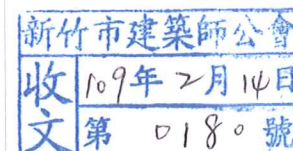 新竹市建築師公會
收文
109年2月14日
第 0180 號